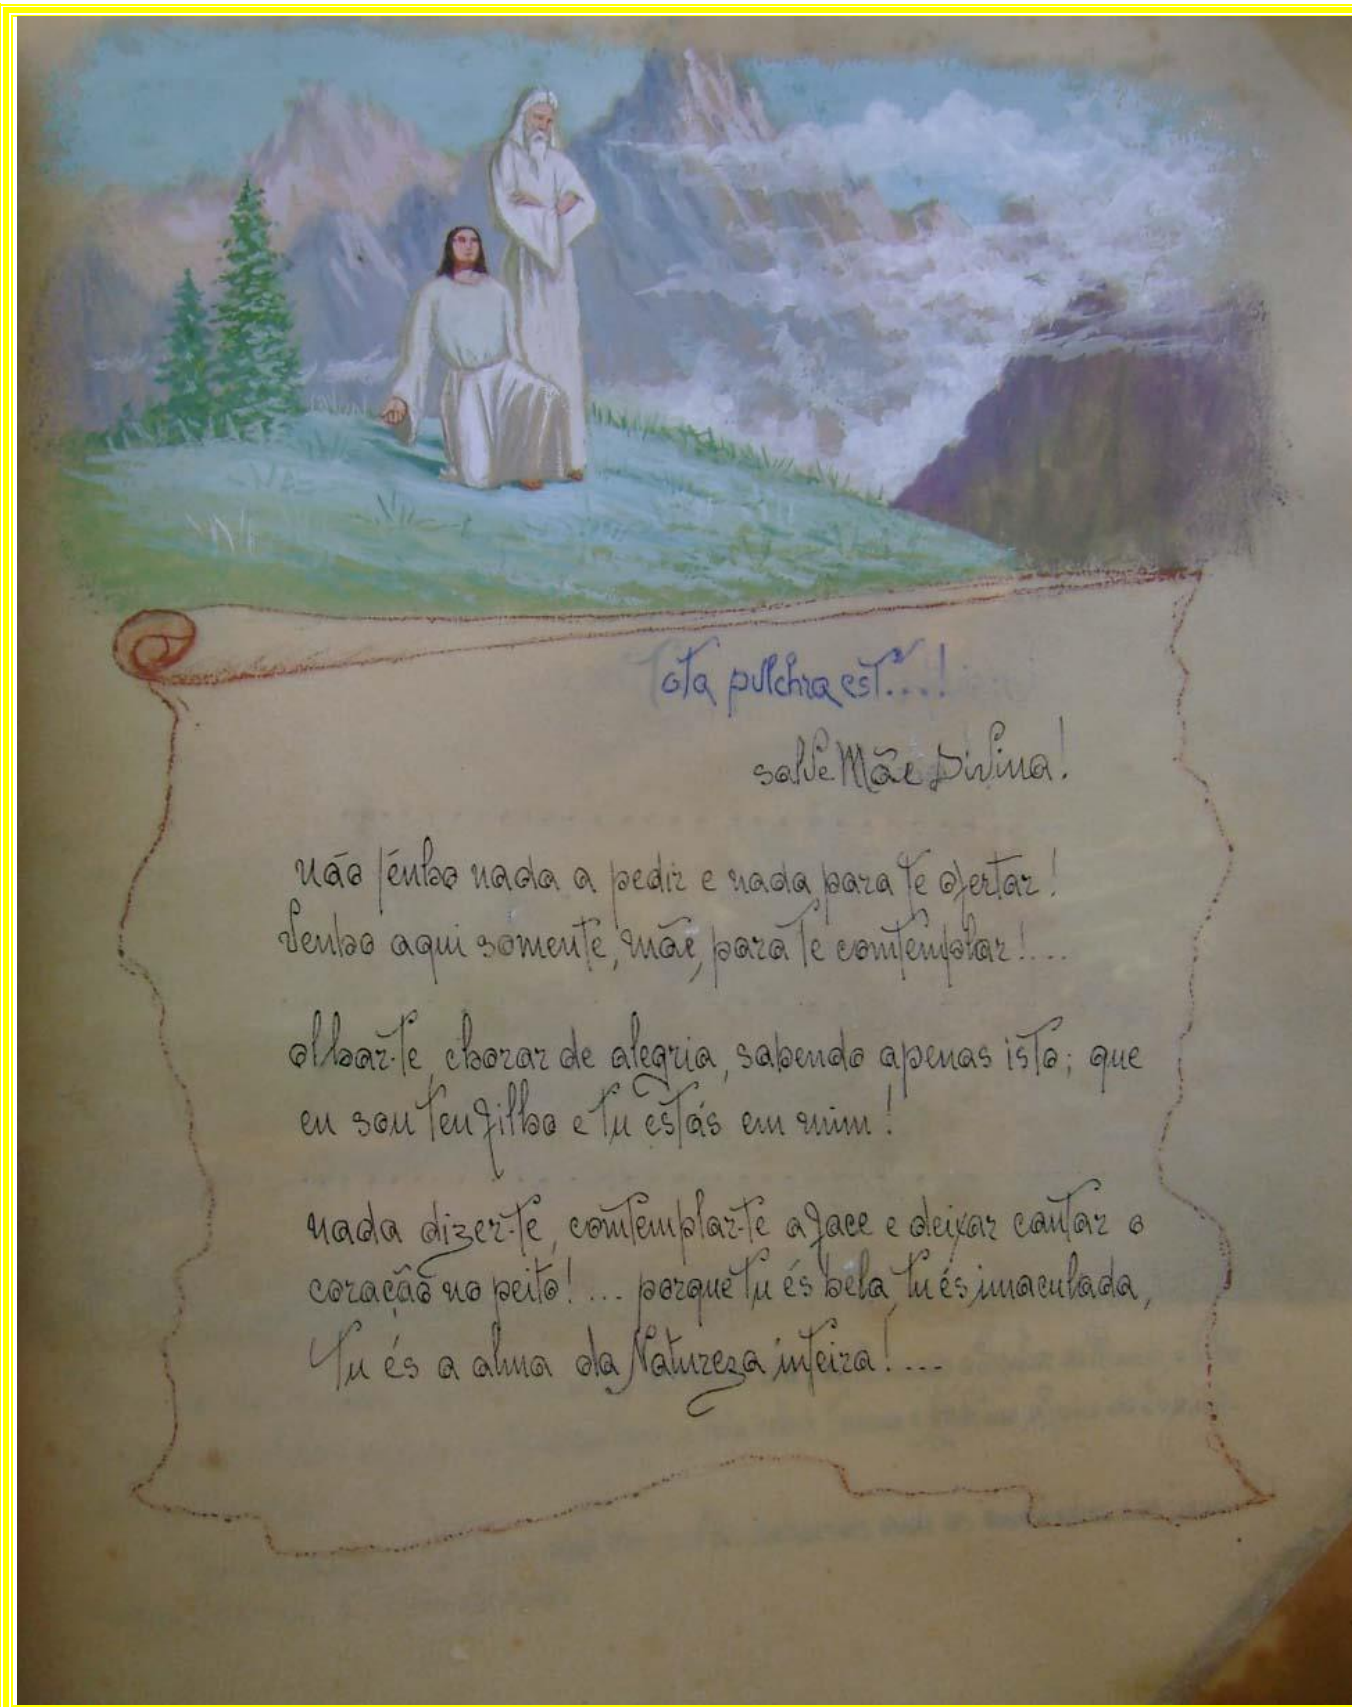 Tota pulchra est...!
salve Mãe Divina!
não tênho nada a pedir e nada para te ofertar!
Venho aqui somente, mãe, para te comtemplar!...
olhar-te, chorar de alegria, sabendo apenas isto; que
eu sou teu filho e tu estás em mim!
nada dizer-te, comtemplar-te a face e deixar cantar o
coração no peito!... porque tu és bela, tu és imaculada,
Tu és a alma da Natureza inteira!...